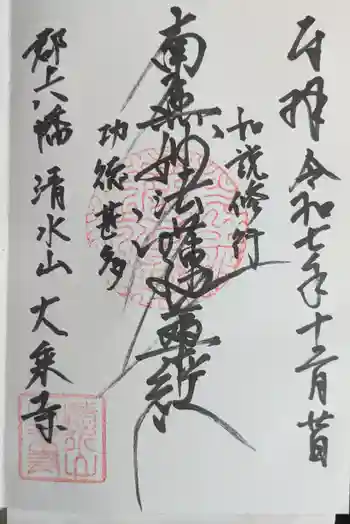 奉拝 令和七年十二月廿日
如説修行
南無妙法蓮華経
功徳甚多
郡上八幡 清水山 大乗寺